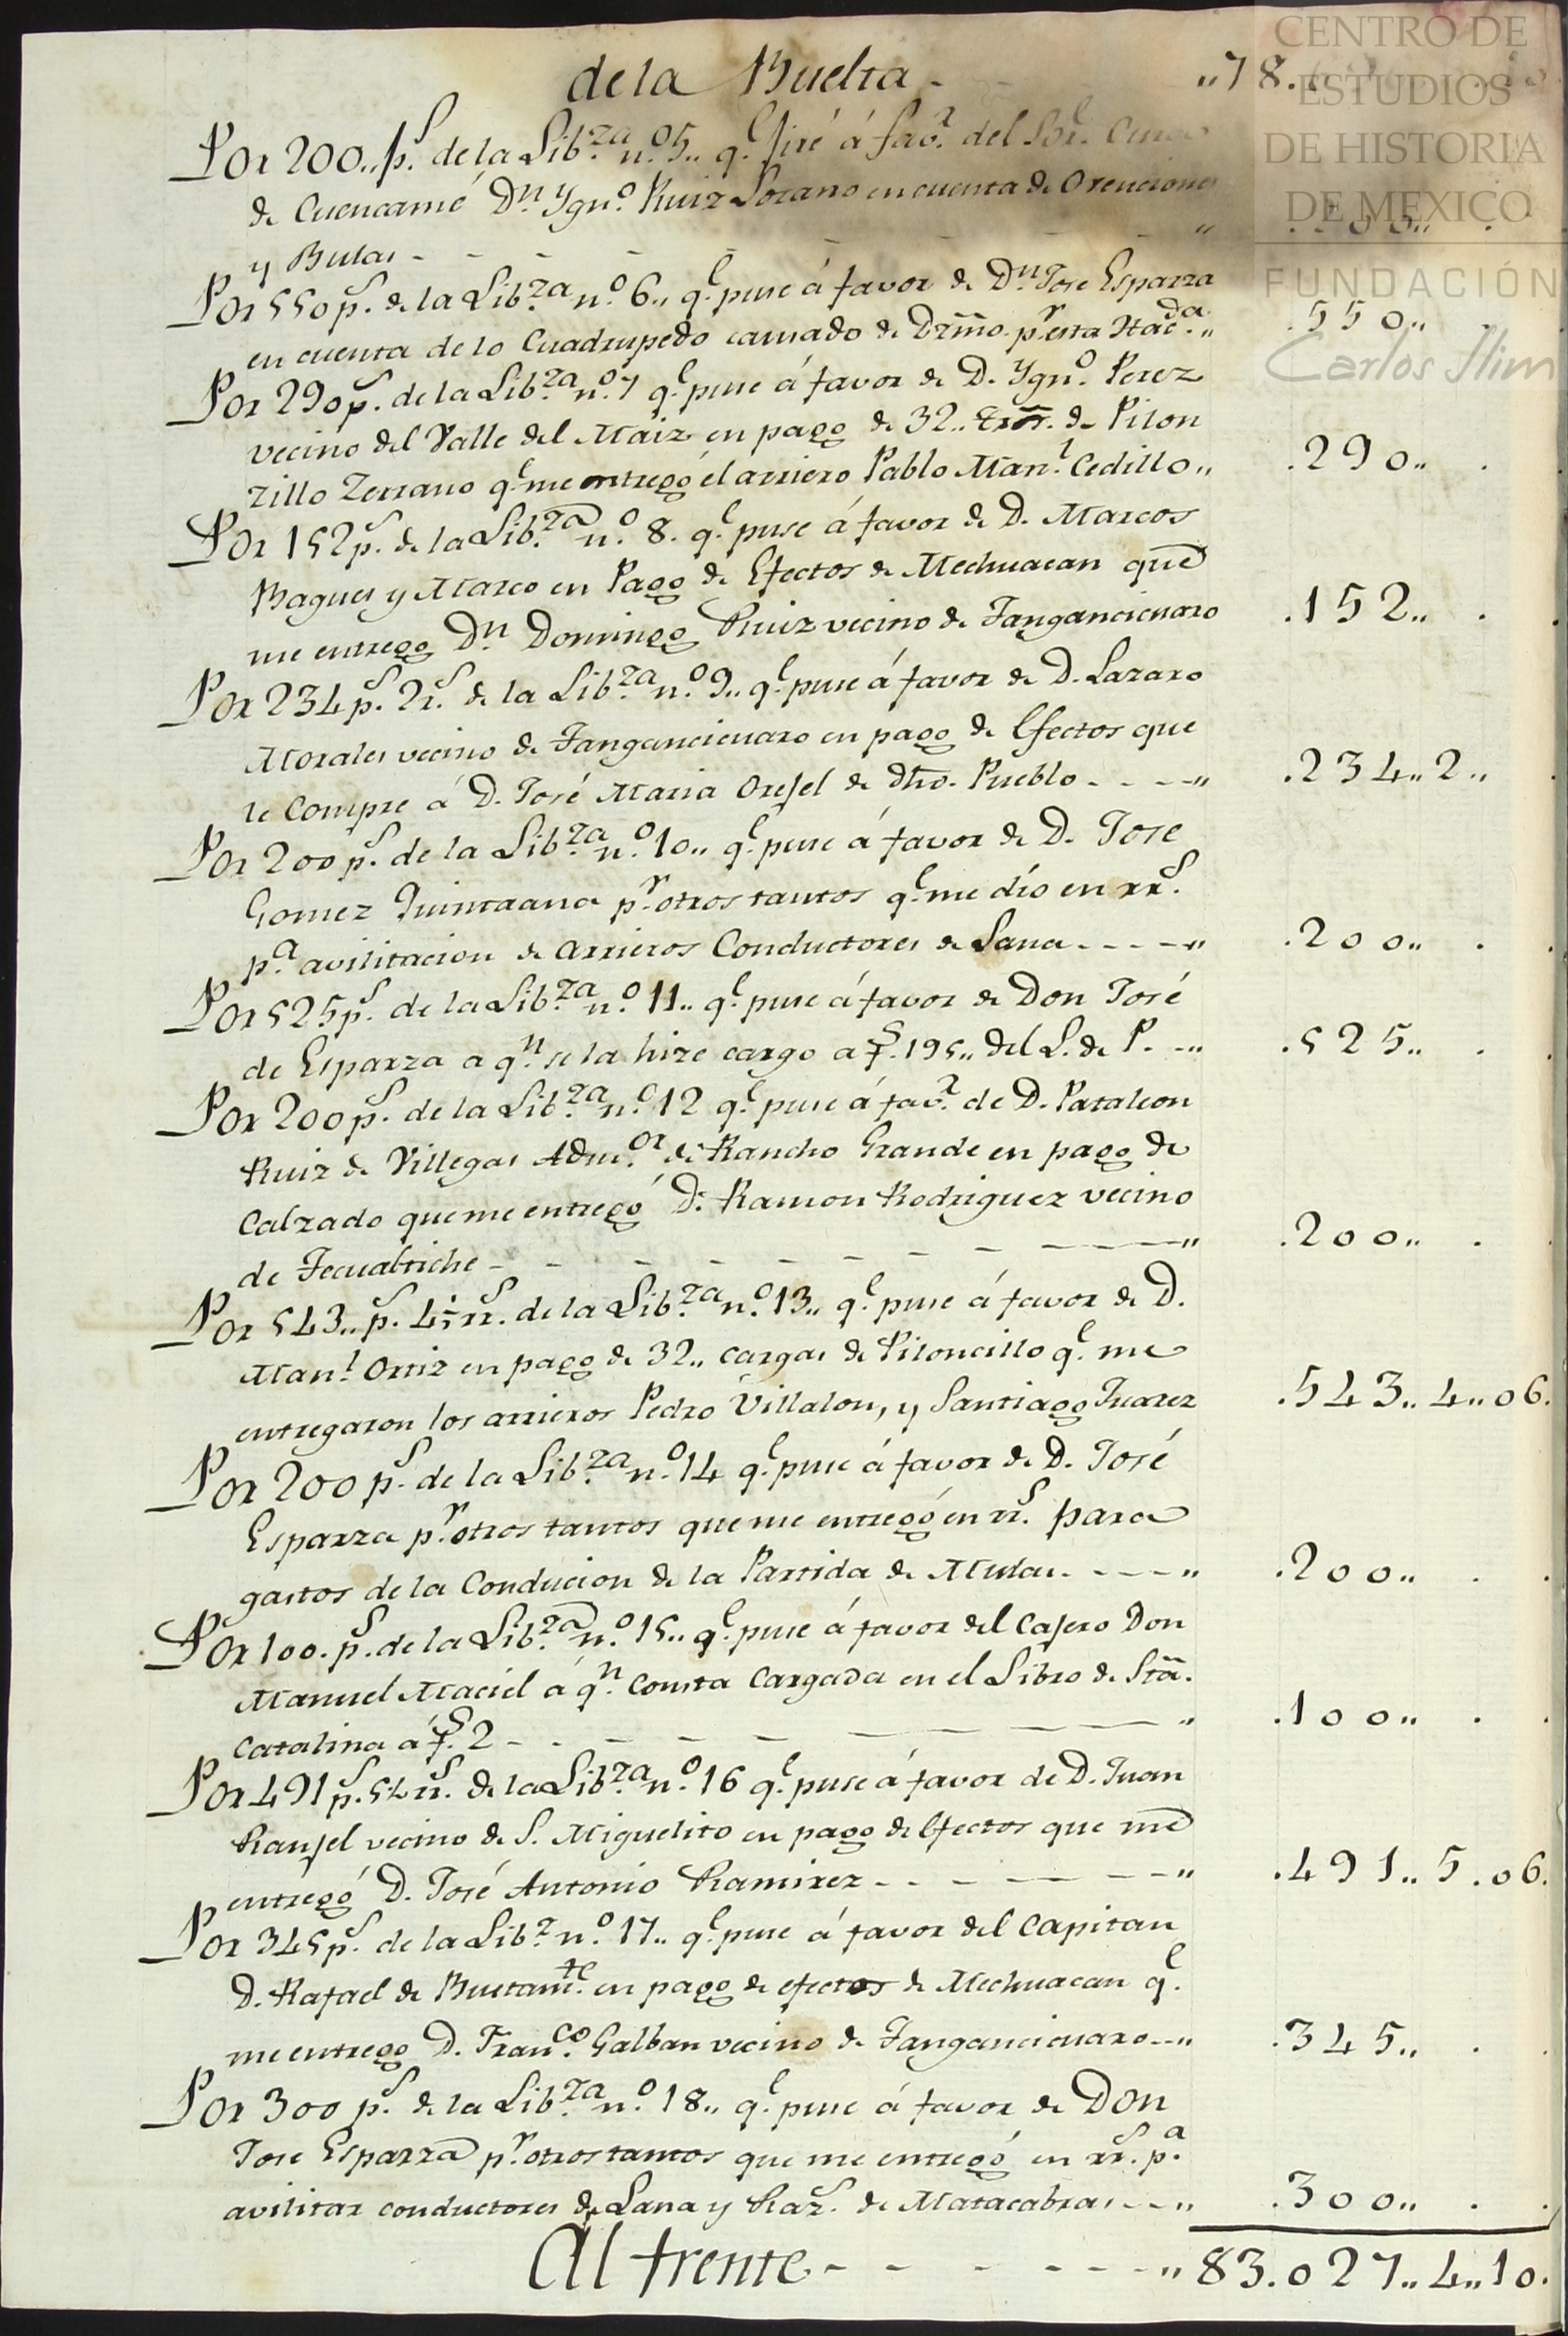 de la Buelta - - - ,,78.
Por 200,, p.s de la Lib.za n.o 5,, q.e jiré á fav.r del Sor. Cura
de Cuencamé Dn. Ygn.o Ruiz Lozano en cuenta de Orenciones
y Bulas - - - - - - - ,, .200,, .
Por 550 p.s de la Lib.za n.o 6,, q.e puse á favor de Dn. Jose Esparza
en cuenta de lo Cuadrupedo causado de Dzmo. p.r esta Hac.da ,, .550,, .
Por 290 p.s de la Lib.za n.o 7 q.e puse á favor de D. Ygn.o Perez
vecino del Valle del Maiz en pago de 32,, tros. de Pilon
zillo Zerrano q.e me entregó el arriero Pablo Man.l Cedillo ,, .290,, .
Por 152 p.s de la Lib.za n.o 8. q.e puse á favor de D. Marcos
Bagues y Marco en Pago de Efectos de Mechuacan que
me entrego Dn. Domingo Ruiz vecino de Tangancicuaro .152,, .
Por 234 p.s 2 r.s de la Lib.za n.o 9,, q.e puse á favor de D. Lazaro
Morales vecino de Tangancicuaro en pago de Efectos que
le Compre á D. José Maria Orejel de dho. Pueblo - - - - ,, .234,,2,, .
Por 200 p.s de la Lib.za n.o 10,, q.e puse á favor de D. Jose
Gomez Quintaana p.r otros tantos q.e me dio en rr.s
p.a avilitacion de arrieros Conductores de Lana - - - - ,, .200,, .
Por 525 p.s de la Lib.za n.o 11,, q.e puse á favor de Don José
de Esparza a q.n se la hize cargo a f.s 195,, del L. de P. - ,, .525,, .
Por 200 p.s de la Lib.za n.o 12 q.e puse á fav.r de D. Pataleon
Ruiz de Villegas Adm.or de Rancho Grande en pago de
Calzado que me entregó D. Ramon Rodriguez vecino
de Tecualtiche - - - - - - - - ,, .200,, .
Por 543,, p.s 4½ rr.s de la Lib.za n.o 13,, q.e puse á favor de D.
Man.l Ortiz en pago de 32,, cargas de Piloncillo q.e me
entregaron los arrieros Pedro Villalon, y Santiago Juarez .543,,4,,06.
Por 200 p.s de la Lib.za n.o 14 q.e puse á favor de D. José
Esparza p.r otros tantos que me entregó en rr.s para
gastos de la Conducion de la Partida de Mulas - - - - ,, .200,, .
Por 100. p.s de la Lib.za n.o 15,, q.e puse á favor del Cajero Don
Manuel Maciel á q.n Consta Cargada en el Libro de Sta.
Catalina á f.s 2 - - - - - - - - ,, .100,, .
Por 491 p.s 5½ rr.s de la Lib.za n.o 16 q.e puse á favor de D. Juan
Ranjel vecino de S. Miguelito en pago de Efectos que me
entregó D. José Antonio Ramirez - - - - - - ,, .491,,5.06.
Por 345 p.s de la Lib.z n.o 17,, q.e puse á favor del Capitan
D. Rafael de Bustam.te en pago de efectos de Mechuacan q.e
me entrego D. Fran.co Galban vecino de Tangancicuaro - - ,, .345,, .
Por 300 p.s de la Lib.za n.o 18,, q.e puse á favor de Don
Jose Esparza p.r otros tantos que me entregó en rr.s p.a
avilitar conductores de Lana y Raz.s de Matacabras - - ,, .300,, .
Al frente - - - - - - - ,, 83.027,,4,,10.
CENTRO DE
ESTUDIOS
DE HISTORIA
DE MEXICO
FUNDACIÓN
Carlos Slim